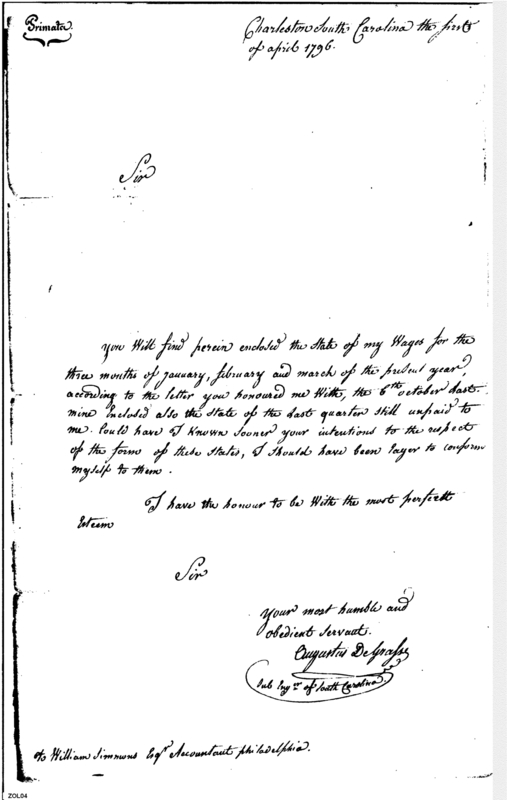 Primata.
Charleston South Carolina the first
of april 1796.
Sir
you Will find herein enclosed the State of my Wages for the
three months of january, february and march of the present year,
according to the letter you honoured me With, the 6th october Last
mine Enclosed also the State of the Last quarter still unpaid to
me. Could have I Known sooner your intentions to the respect
of the form of these States, I Should have been Eager to conform
myself to them.
I have the honour to be With the most perfectt
Esteem
Sir
your most humble and
obedient Servant.
Augustus DeGrasse
Sub Engr. of South Carolina.
to William Simmons Esqr. Accountant philadelphia.
ZOL04